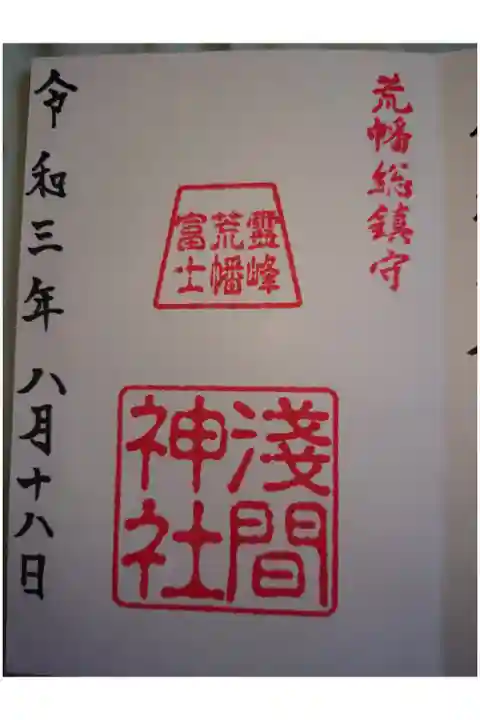 荒幡総鎮守
霊峰
荒幡
富士
淺間
神社
令和三年 八月十八日